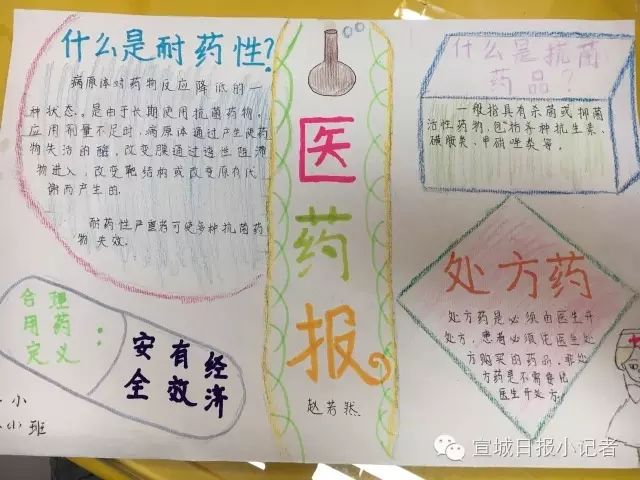 什么是耐药性?
病原体对药物反应降低的一
种状态。是由于长期使用抗菌药物,
应用剂量不足时,病原体通过产生使药
物失活的酶,改变膜通透性阻滞
物进入,改变靶结构或改变原有代
谢而产生的.
耐药性严重者可使多种抗菌药
物失效.
合理
用药:
定义
安有经
全效济
小
小班
医
药
报
赵若然
什么是抗菌
药品?
一般指具有杀菌或抑菌
活性药物,包括各种抗生素、
磺胺类、甲硝唑类等。
处方药
处方药是必须由医生开
处方,患者必须凭医生处
方购买的药品,非处
方药是不需要凭
医生开处方.
宣城日报小记者